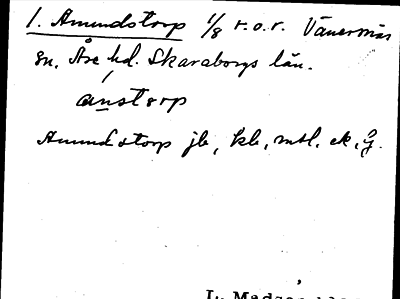 1. Amundstorp 1/8 r.o.r. Vänernäs
sn. Åse hd. Skaraborgs län.
anstorp
Amundstorp jb, kb, mtl. ek. g.